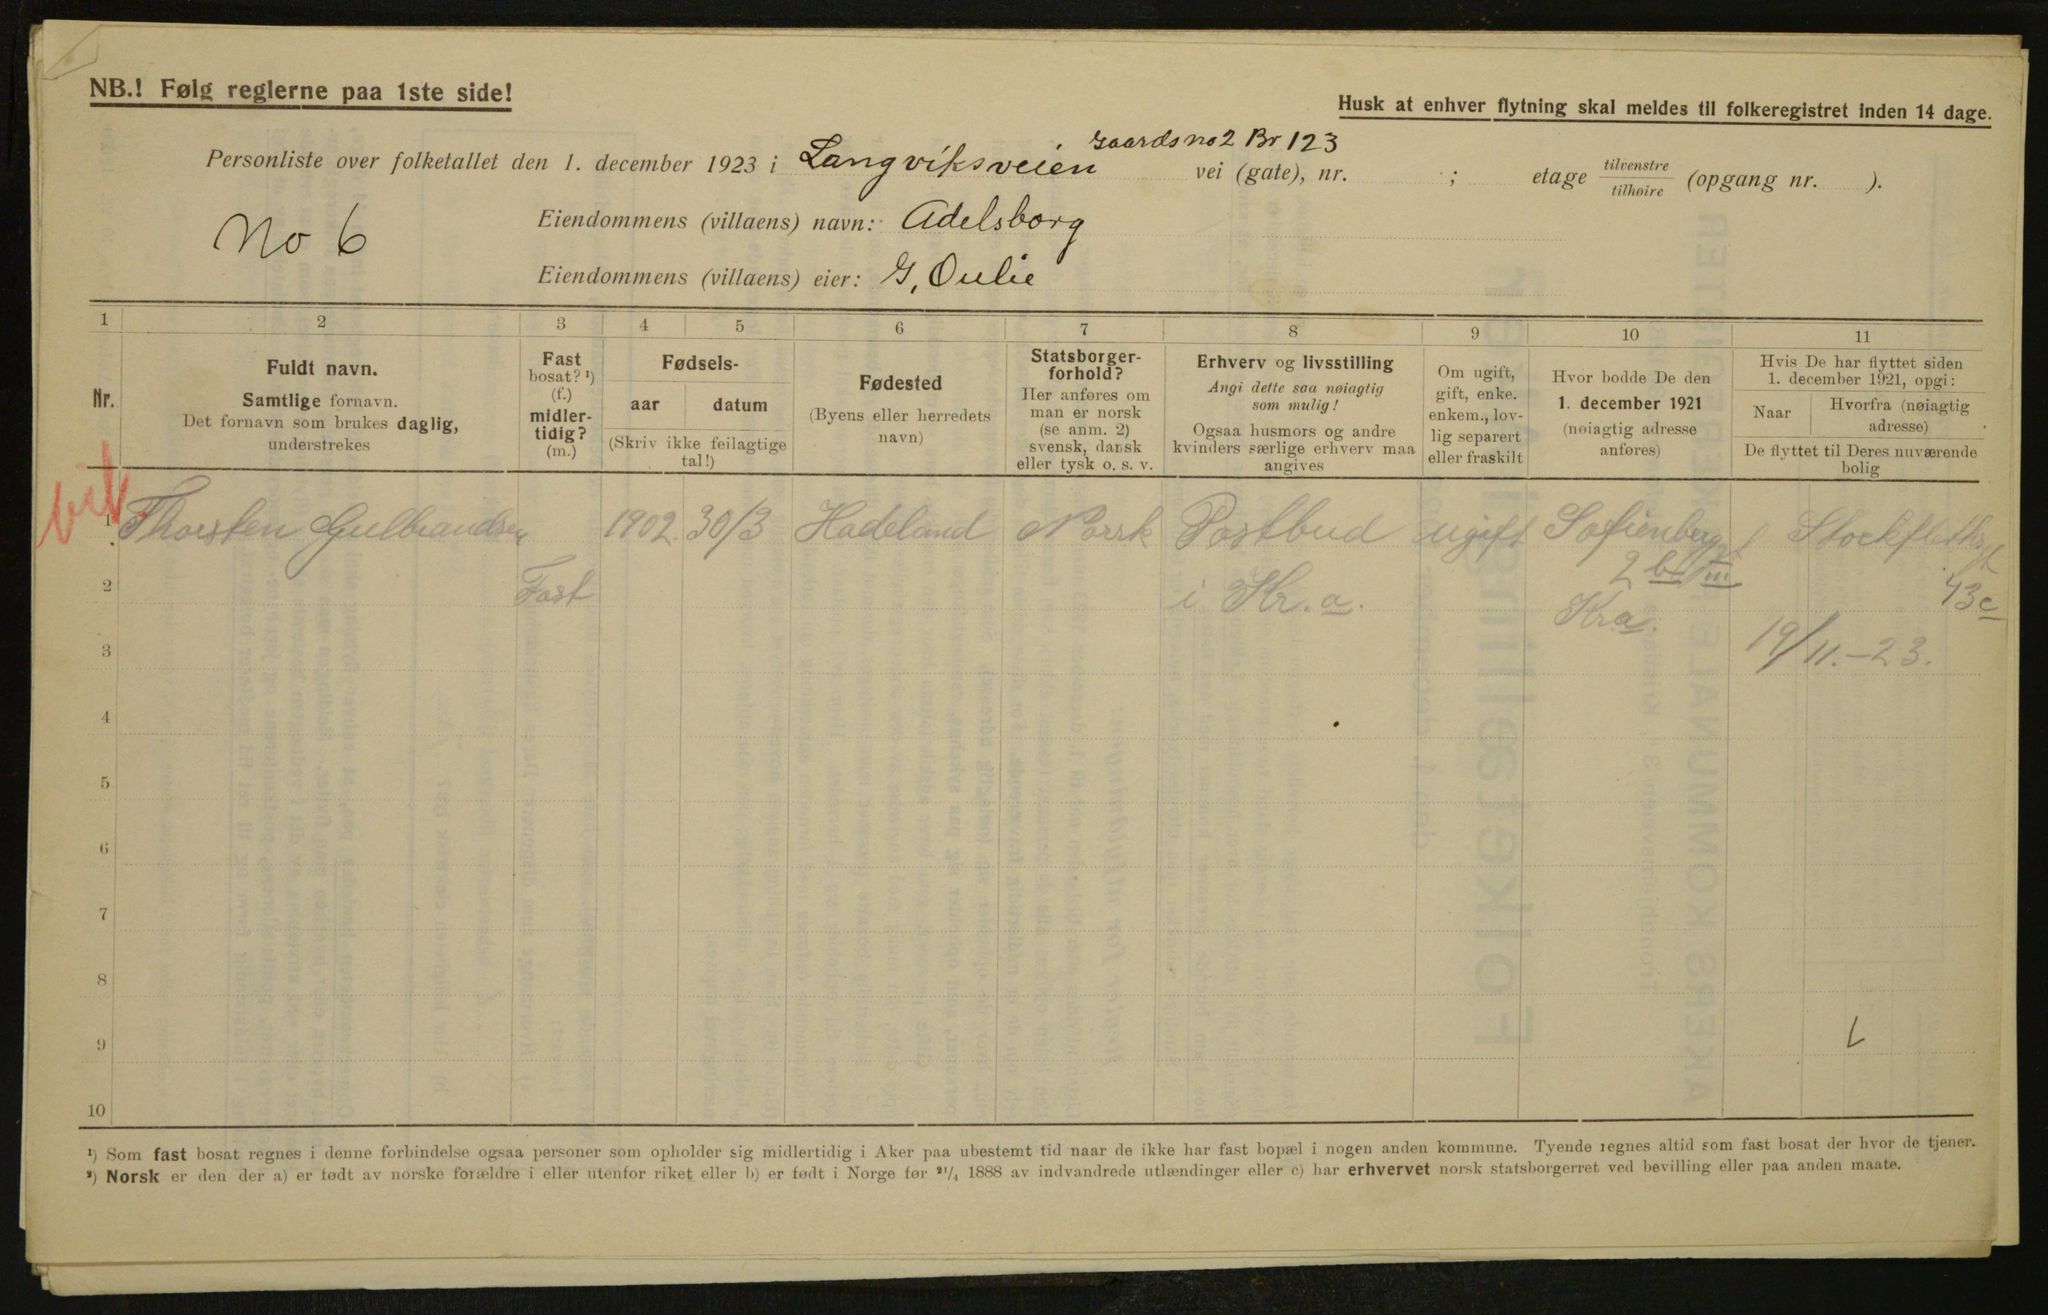 NB.! Følg reglerne paa 1ste side!
Husk at enhver flytning skal meldes til folkeregistret inden 14 dage.
Gaards no 2 Br 123
Personliste over folketallet den 1. december 1923 i Langviksveien vei (gate), nr. ; etage tilvenstre tilhøire (opgang nr. ).
No 6
Eiendommens (villaens) navn: Adelsborg
Eiendommens (villaens) eier: G. Oulie
1 2 3 4 5 6 7 8 9 10 11
Nr.
Fuldt navn.
Samtlige fornavn.
Det fornavn som brukes daglig,
understrekes
Fast
bosat? ¹)
(f.)
midler-
tidig?
(m.)
Fødsels-
aar datum
(Skriv ikke feilagtige
tal!)
Fødested
(Byens eller herredets
navn)
Statsborger-
forhold?
Her anføres om
man er norsk
(se anm. 2)
svensk, dansk
eller tysk o. s. v.
Erhverv og livsstilling
Angi dette saa nøiagtig
som mulig!
Ogsaa husmors og andre
kvinders særlige erhverv maa
angives
Om ugift,
gift, enke.
enkem., lov-
lig separert
eller fraskilt
Hvor bodde De den
1. december 1921
(nøiagtig adresse
anføres)
Hvis De har flyttet siden
1. december 1921, opgi:
Naar
Hvorfra (nøiagtig
adresse)
De flyttet til Deres nuværende
bolig
1 Thorsten Gulbrandsen 1902. 30/3 Hadeland Norsk Postbud ugift Sofienberggt Stockflethsgt
2 Fast i Kr.a. 2 b III 43c
Kra.
3 19/11.-23.
4
5
6
7
8
9
10
¹) Som fast bosat regnes i denne forbindelse ogsaa personer som opholder sig midlertidig i Aker paa ubestemt tid naar de ikke har fast bopæl i nogen anden kommune. Tyende regnes altid som fast bosat der hvor de tjener.
²) Norsk er den der a) er født av norske forældre i eller utenfor riket eller b) er født i Norge før ²¹/₄ 1888 av indvandrede utlændinger eller c) har erhvervet norsk statsborgerret ved bevilling eller paa anden maate.